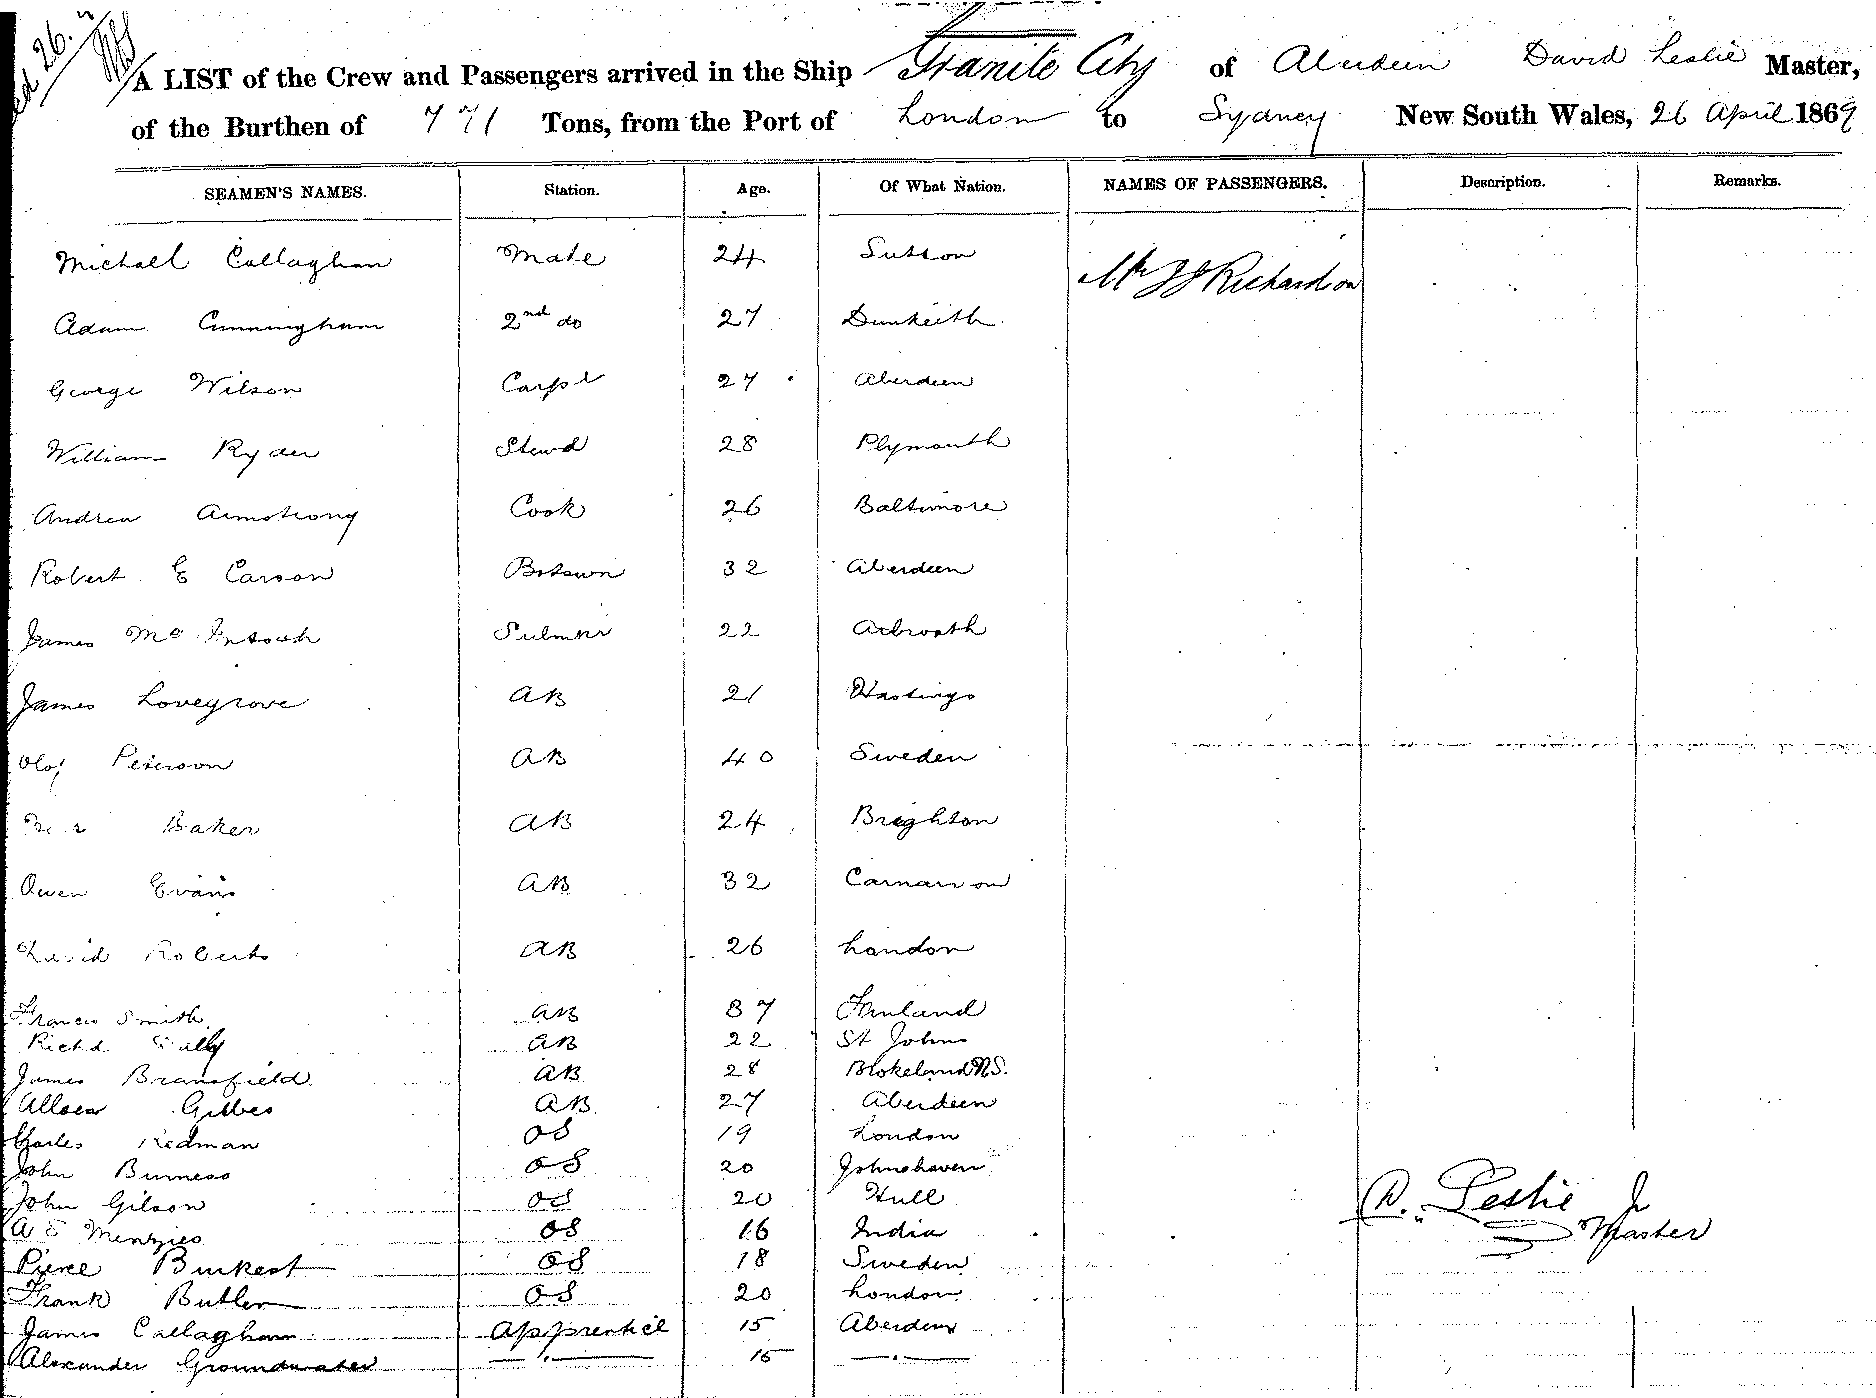 A LIST of the Crew and Passengers arrived in the Ship Granite City of Aberdeen David Leslie Master,
of the Burthen of 771 Tons, from the Port of London to Sydney New South Wales, 26 April 1869
SEAMEN'S NAMES. Station. Age. Of What Nation. NAMES OF PASSENGERS. Description. Remarks.
Michall Callaghan Mate 24 Sutton Mr JJ Richardson
Adam Cunningham 2nd do 27 Dunkeith
George Wilson Carpr 27 Aberdeen
William Ryder Stewd 28 Plymouth
Andrew Armstrong Cook 26 Baltimore
Robert E Carson Botswn 32 Aberdeen
James McIntosh 22 Arbroath
James Lovegrove AB 21 Hastings
Olof Peterson AB 40 Sweden
Baker AB 24 Brighton
Owen Evans AB 32 Carnarvon
David Roberts AB 26 London
Francis Smith AB 37 Finland
Richd AB 22 St Johns
James Bransfield AB 28 NS.
Gibbes AB 27 Aberdeen
Charles Redman OS 19 London
John Burness OS 20 Johnshaven
John Gilson OS 20 Hull
A E Menzies OS 16 India
Pierce Burkest OS 18 Sweden
Frank Butler OS 20 London
James Callaghan Apprentice 15 Aberdeen
Alexander Groundwater 15
D. Leslie Jr
Master